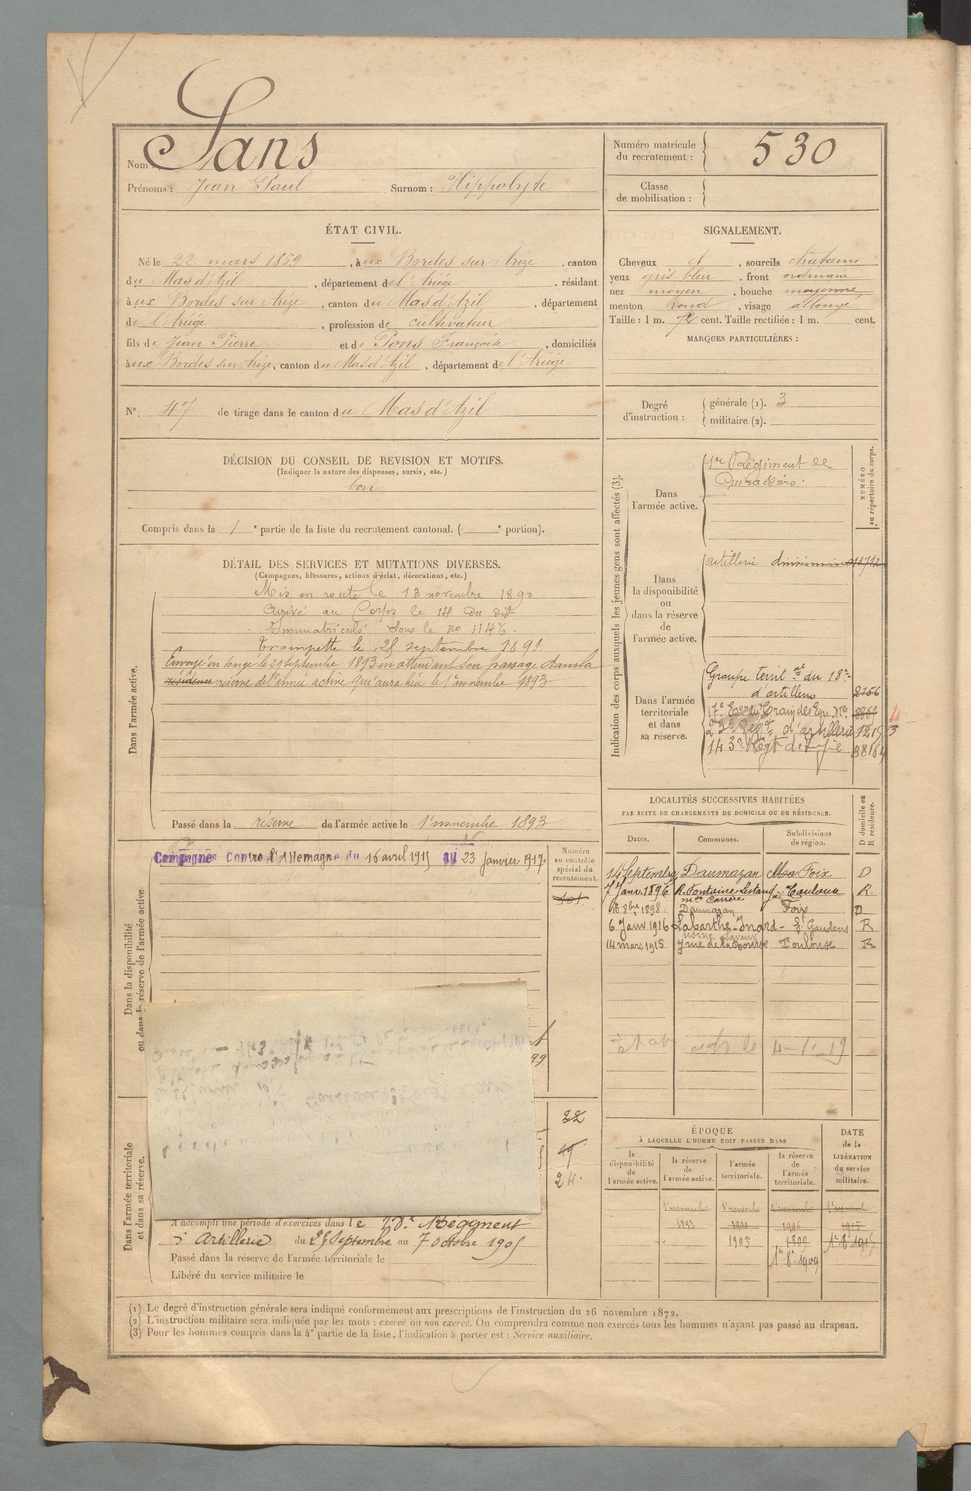 Nom : Sans
Prénoms : Jean Paul Surnom : Hippolyte
Numéro matricule du recrutement : 530
Classe de mobilisation :
ÉTAT CIVIL.
Né le 22 mars 1869, à ux Bordes sur Arize, canton
du Mas d'Azil, département de l'Ariège, résidant
à ux Bordes sur Arize, canton du Mas d'Azil, département
de l'Ariège, profession de cultivateur
fils de Jean Pierre et de Pons Françoise, domiciliés
à ux Bordes sur Arize, canton du Mas d'Azil, département de l'Ariège
N° 47 de tirage dans le canton du Mas d'Azil
SIGNALEMENT.
Cheveux et, sourcils chatains
yeux gris bleu, front ordinaire
nez moyen, bouche moyenne
menton rond, visage allongé
Taille : 1 m. 72 cent. Taille rectifiée : 1 m. cent.
MARQUES PARTICULIÈRES :
Degré d'instruction : générale (1). 3
militaire (2).
DÉCISION DU CONSEIL DE REVISION ET MOTIFS.
(Indiquer la nature des dispenses, sursis, etc.)
bon
Compris dans la 1e partie de la liste du recrutement cantonal. ( e portion).
DÉTAIL DES SERVICES ET MUTATIONS DIVERSES.
(Campagnes, blessures, actions d'éclat, décorations, etc.)
Dans l'armée active.
Mis en route le 13 novembre 1890
Arrivé au Corps le 14 du dit
Immatriculé sous le no 1146.
Trompette le 25 septembre 1891
Envoyé en congé le 24 septembre 1893 en attendant son passage dans la
résidence réserve de l'armée active qui aura lieu le 1er novembre 1893
Passé dans la réserve de l'armée active le 1er novembre 1893
Indication des corps auxquels les jeunes gens sont affectés (3).
NUMÉRO au répertoire du corps.
Dans l'armée active.
1er Régiment de
Cuirassiers.
Dans la disponibilité ou dans la réserve de l'armée active.
artillerie divisionnaire 13712
Dans l'armée territoriale et dans sa réserve.
Groupe territ. du 18e
d'artillerie 2166
143e Regt
LOCALITÉS SUCCESSIVES HABITÉES
PAR SUITE DE CHANGEMENTS DE DOMICILE OU DE RÉSIDENCE.
Dates. Communes. Subdivisions de région. D domicile ou R résidence.
14 Septembre Daumazan Foix D
7 Janv. 1896 R. Fontaine Lestang Toulouse R.
mon Carrère
8bre 1898. Daumazan Foix D
6 Janv 1916 Labarthe-Inard St Gaudens R
14 mars 1915 Toulouse R
Dans la disponibilité ou dans la réserve de l'armée active
Campagnes Contre l'Allemagne du 16 avril 1915 au 23 Janvier 1917.
Numéro au contrôle spécial du recrutement.
Dans l'armée territoriale et dans sa réserve.
22
24.
A accompli une période d'exercices dans le 18e Régiment
d'Artillerie du 25 Septembre au 7 octobre 1905
Passé dans la réserve de l'armée territoriale le
Libéré du service militaire le
ÉPOQUE
À LAQUELLE L'HOMME DOIT PASSER DANS
la disponibilité de l'armée active.
la réserve de l'armée active.
l'armée territoriale.
la réserve de l'armée territoriale.
DATE de la LIBÉRATION du service militaire.
1er novembre 1893
1er novembre 1900
1er novembre 1906
1903
1909
1er 8e 1909
(1) Le degré d'instruction générale sera indiqué conformément aux prescriptions de l'instruction du 26 novembre 1872.
(2) L'instruction militaire sera indiquée par les mots : exercé ou non exercé. On comprendra comme non exercés tous les hommes n'ayant pas passé au drapeau.
(3) Pour les hommes compris dans la 4e partie de la liste, l'indication à porter est : Service auxiliaire.